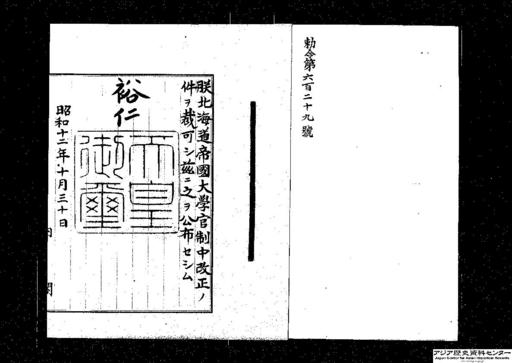 勅令第六百二十九號
朕北海道帝國大學官制中改正ノ
件ヲ裁可シ茲ニ之ヲ公布セシム
裕仁
天皇
御璽
昭和十二年十月三十日
内閣
アジア歴史資料センター
Japan Center for Asian Historical Records